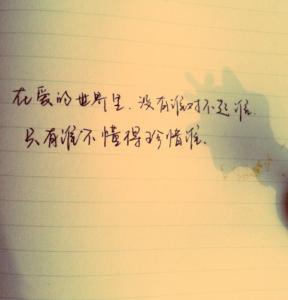 在爱的世界里.没有谁对不起谁.
只有谁不懂得珍惜谁.